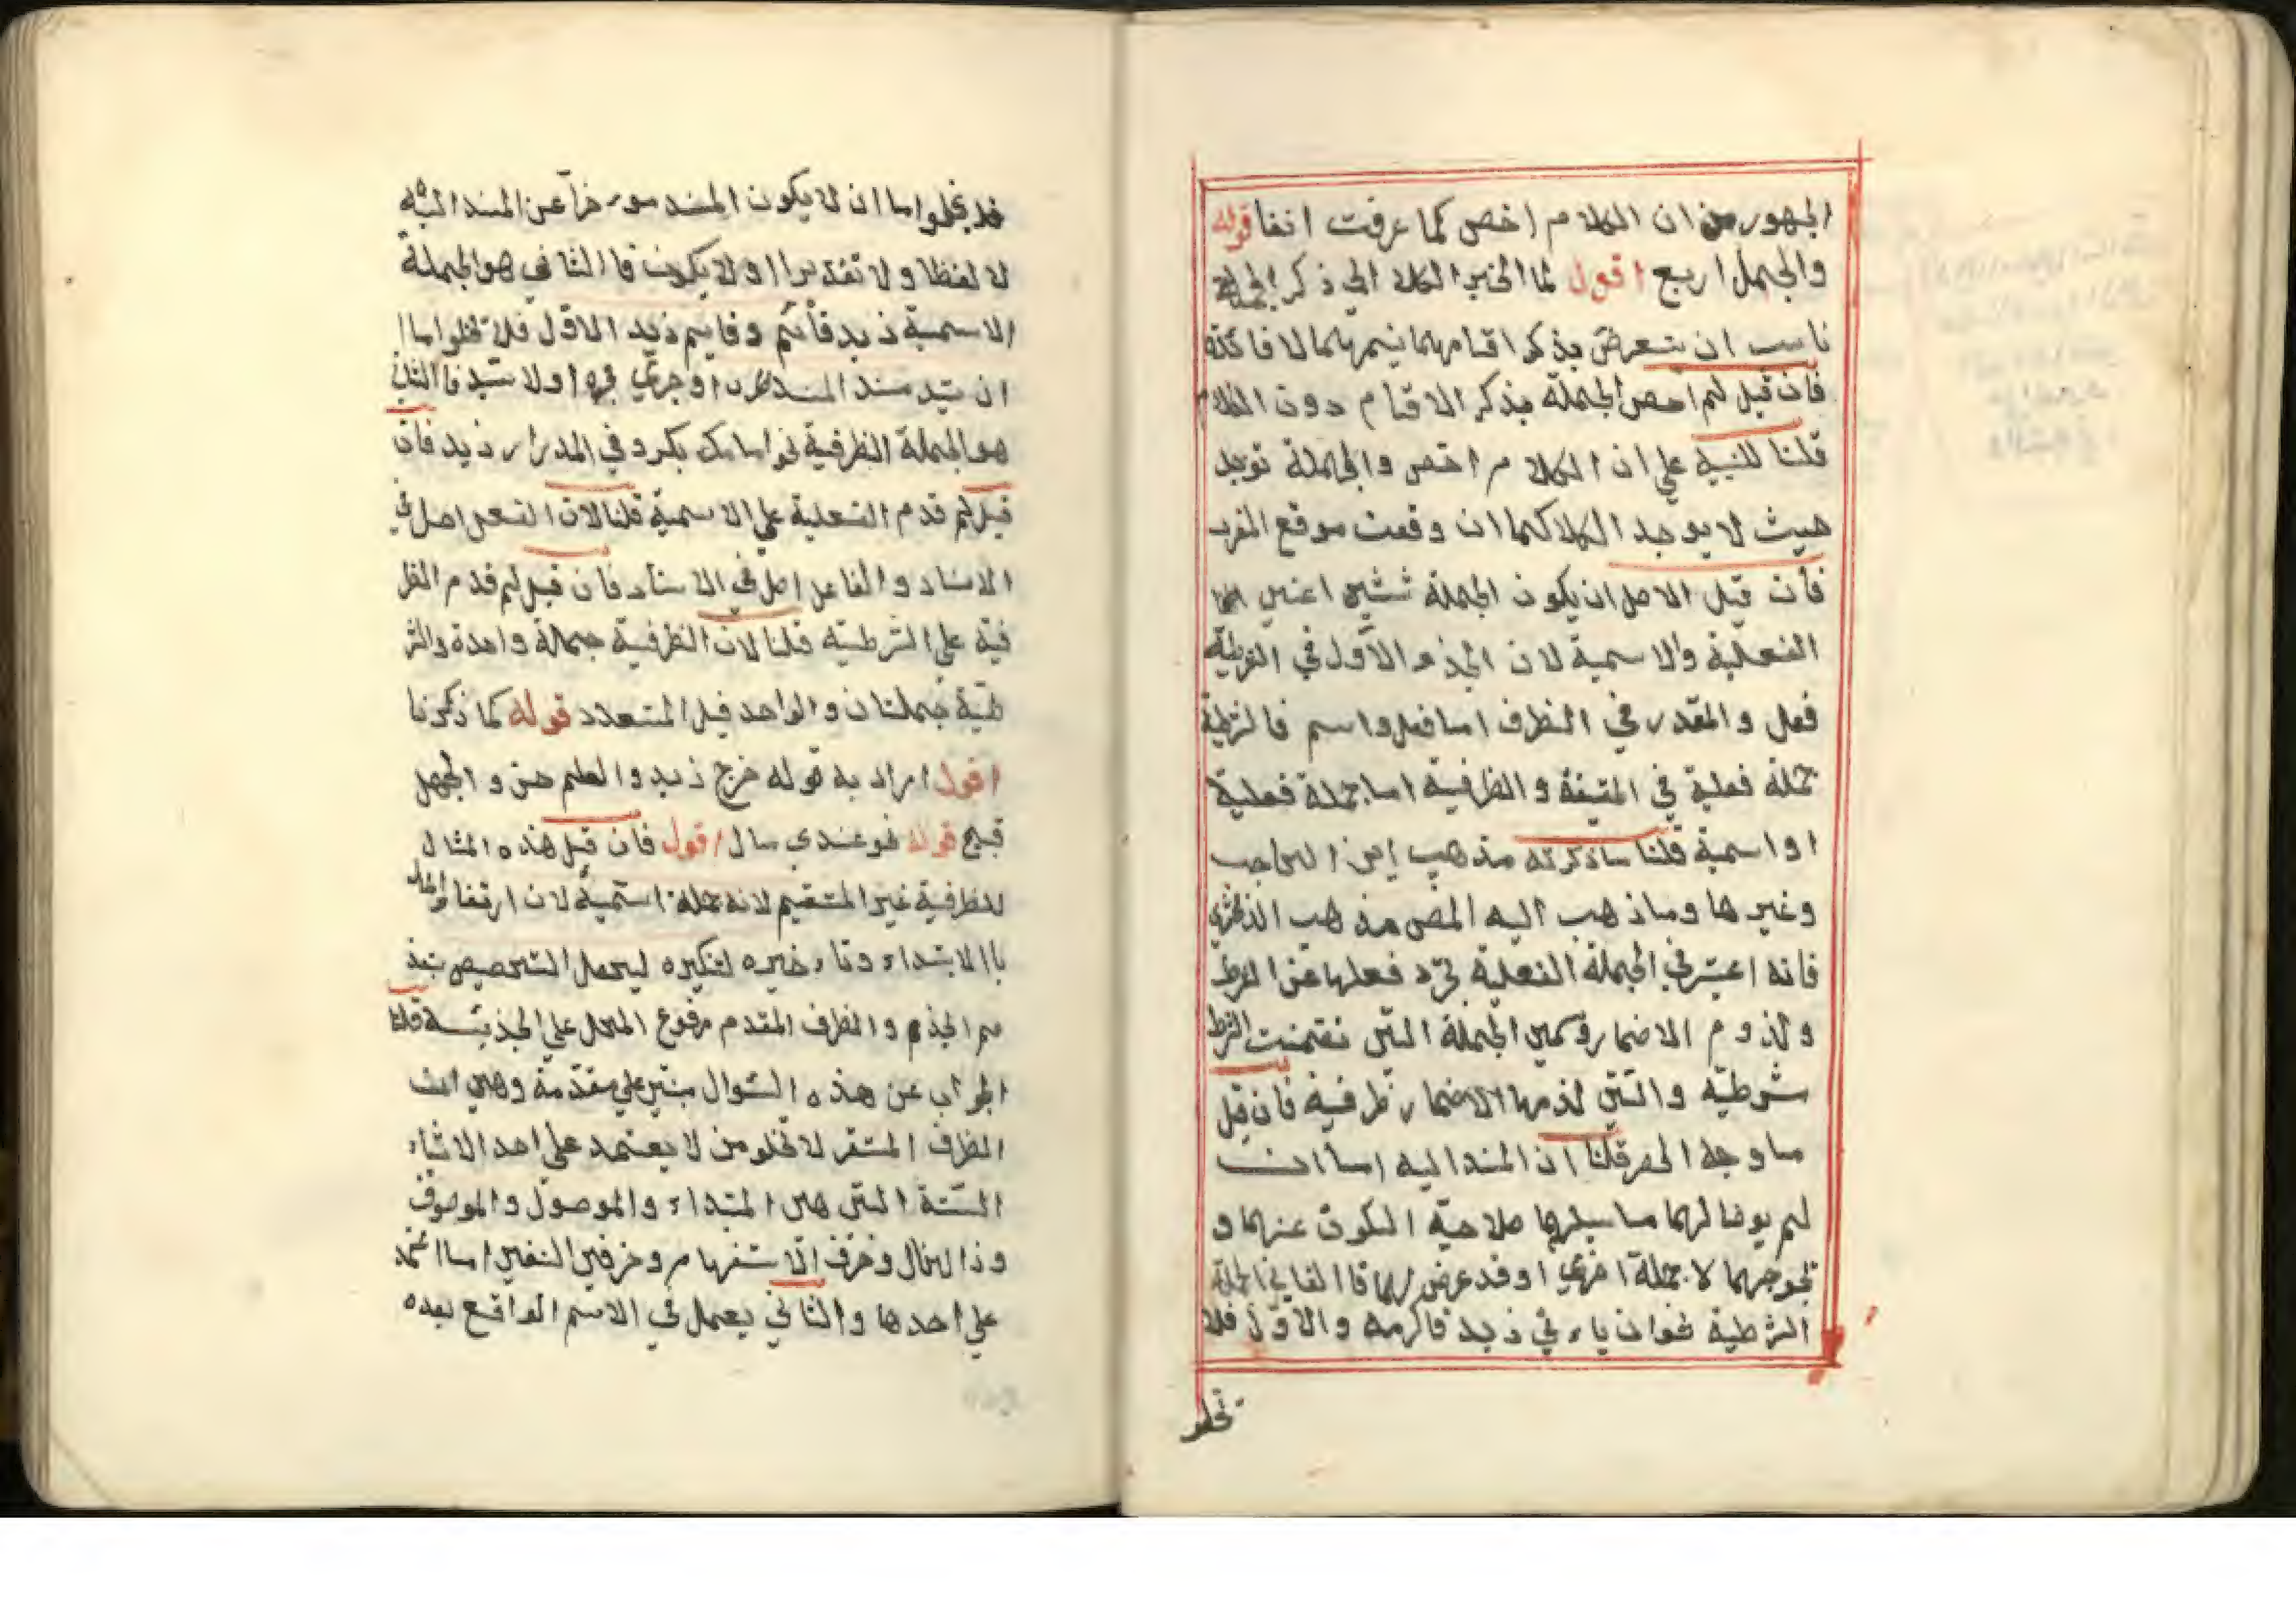 الجمهور من ان الكلام اخص كما عرفت انفا قوله
والجمل اربع اقول لما انجر الكلام الي ذكر الجملة
ناسب ان يتعرض بذكر اقسامهما
فان قيل لم اخص الجملة بذكر الاقسام دون الكلام
قلنا للتنبيه علي ان الكلام اخص والجملة توجد
حيث لا يوجد الكلام كما ان وقعت موقع المفرد
فان قيل الاصل ان يكون الجملة ثنتين اعني
الفعلية والاسمية لان الجزء الاول في الشرطية
فعل والمقدر في الظرف اما فعل واسم فالشرطية
جملة فعلية في الحقيقة والظرفية اما جملة فعلية
او اسمية قلنا ما ذكرته مذهب ابن الحاجب
وغيرها وما ذهب اليه المص مذهب الزمخشري
فانه اعتبر في الجملة الفعلية تجرد فعلها عن الشرط
ولزوم الاضمار وسمي الجملة التي تضمنت الشرط
شرطية والتي لزمها الاضمار ظرفية فان قيل
ما وجه الحصر قلنا ان المسند اليه اما ان
لم يوفا لهما صلاحية السكوت عنهما و
لا جملة اخري او قد عرض لهما فا الثاني الجملة
الشرطية نحو ان ياء تي زيد فاكرمه والاول فلا
تخلو
فلا يخلوا اما ان لا يكون المسند موءخرا عن المسند اليه
لا لفظا ولا تقديرا اولا يكون فا الثاني هو الجملة
الاسمية زيد قائم وقايم زيد الاول فلا تخلوا اما
ان يسد مسند المسند ظرف او جري مجرها اولا يسد فا الثاني
هو الجملة الظرفية نحو امامك بكر وفي الدار زيد فان
قيل لم قدم الفعلية علي الاسمية قلنا لان الفعل اصل في
الاسناد والفاعل اصل في الاسناد فان قيل لم قدم الظر
فية علي الشرطية قلنا لان الظرفية جملة واحدة والشر
طية جملتان والواحد قبل المتعدد قوله كما ذكرنا
اقول اراد به قوله خرج زيد والعلم حسن والجهل
قبيح قوله نحو عندي مال اقول فان قيل هذه المثال
للظرفية غير المستقيم لانه جملة اسمية لان ارتفا
باالابتداء وتاء خيره لتنكيره ليحصل التخصيص بتقد
يم الجزء والظرف المقدم مرفوع المحل علي الجزئية قلنا
الجواب عن هذه السوال مبني علي مقدمة وهي ان
الظرف المستقر لا تخلو من لا يعتمد علي احد الاشياء
الستة التي هي المبتداء والموصول والموصوف
وذا الحال وحرف الاستفهام وحرفي النفي اما اعتمد
علي احدها والثاني يعمل في الاسم الواقع بعده